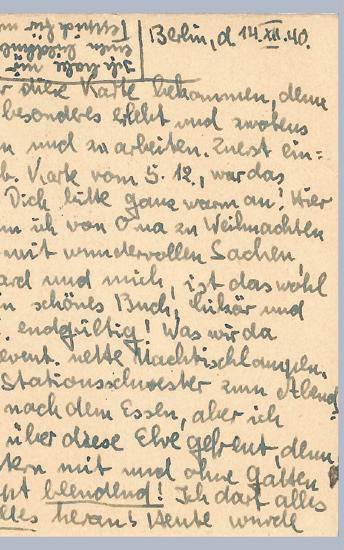 Berlin, d. 14.XII.40.
Ich habe mir
einen
Teppich für
diese Karte bekommen, denn
besonderes erlebt und zweitens
n und zu arbeiten. Zuerst ein=
b. Karte vom 5.12., war das
Dich bitte ganz warm an! Hier
m ich von Oma zu Weihnachten
mit wundervollen Sachen,
ard und mich, ist das wohl
n schönes Buch, Likör und
endgültig! Was wir da
event. nette Nachttischlampen.
Stationsschwester zum Abend=
nach dem Essen, aber ich
über diese Ehre gefreut, denn
stern mit und ohne Gatten
pt blendend! Ich darf alles
lles heran! Heute wurde